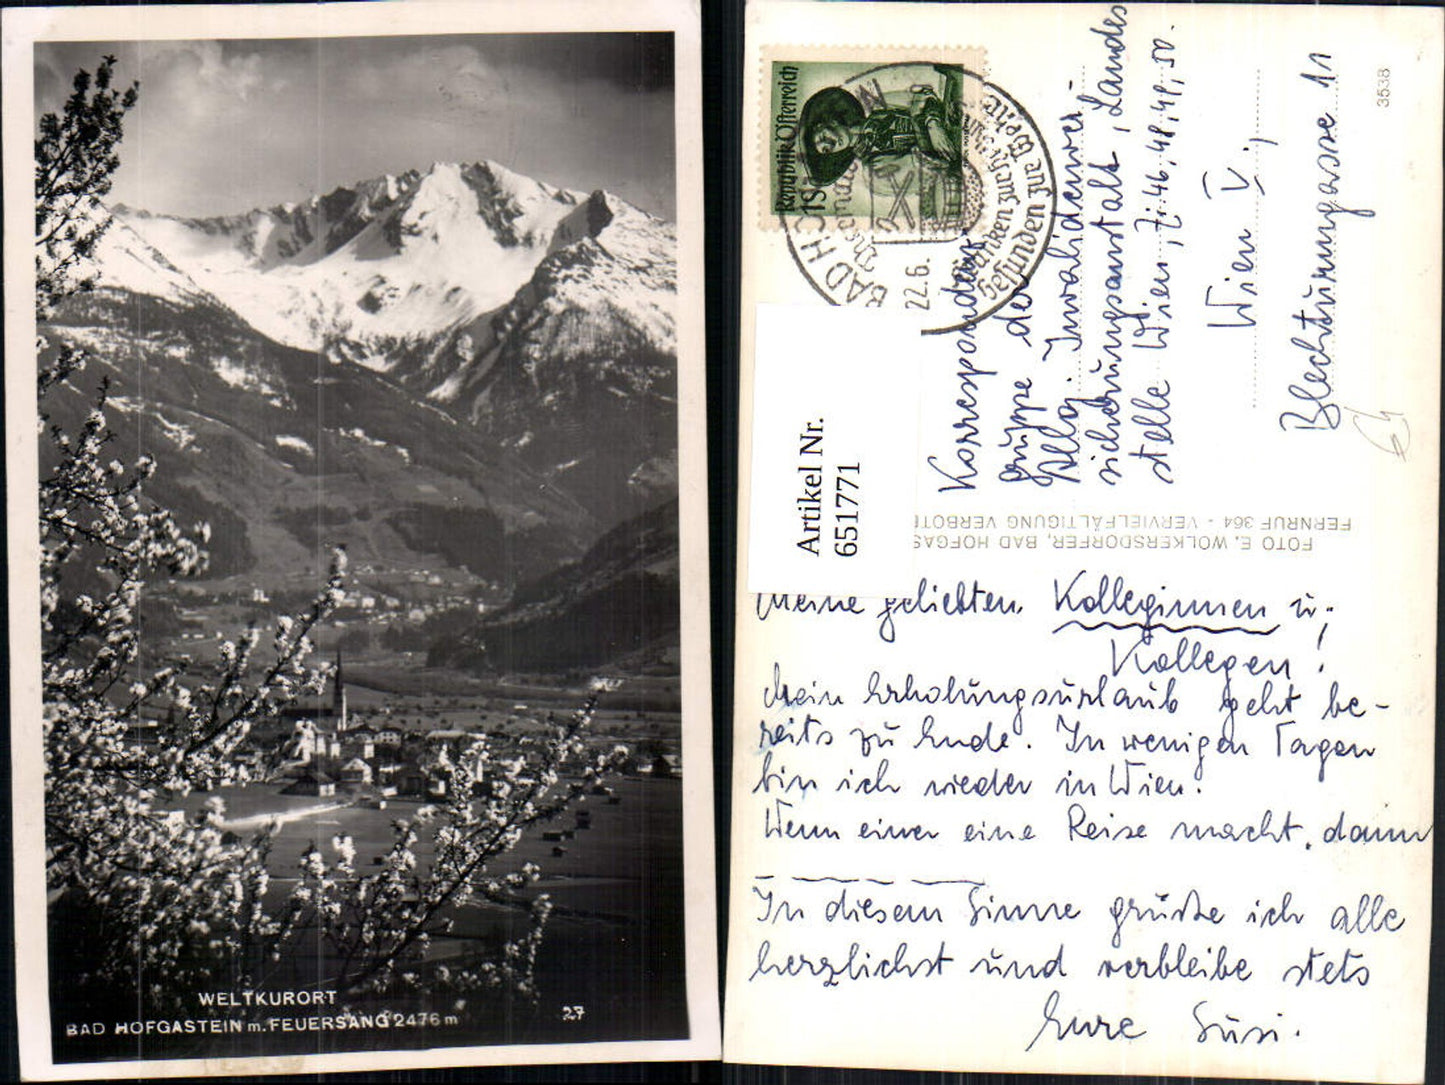 WELTKURORT
BAD HOFGASTEIN m. FEUERSANG 2476 m
27
Republik Österreich
1S
BAD HOFG
22.6.
Kranken zur
Gesunden zur Wehr
Artikel Nr.
651771
3538
Korrespondenz
gruppe der
Allg. Invalidenver-
sicherungsanstalt, Landes
stelle Wien, Z: 46, 48, 49, 50.
Wien V.,
Blechturmgasse 11
FOTO E. WOLKERSDORFER, BAD HOFGAS
FERNRUF 364 - VERVIELFÄLTIGUNG VERBOTE
Meine geliebten Kolleginnen u.
Kollegen!
Mein Erholungsurlaub geht be-
reits zu Ende. In wenigen Tagen
bin ich wieder in Wien.
Wenn einer eine Reise macht, dann
In diesem Sinne grüsse ich alle
herzlichst und verbleibe stets
Eure Susi.